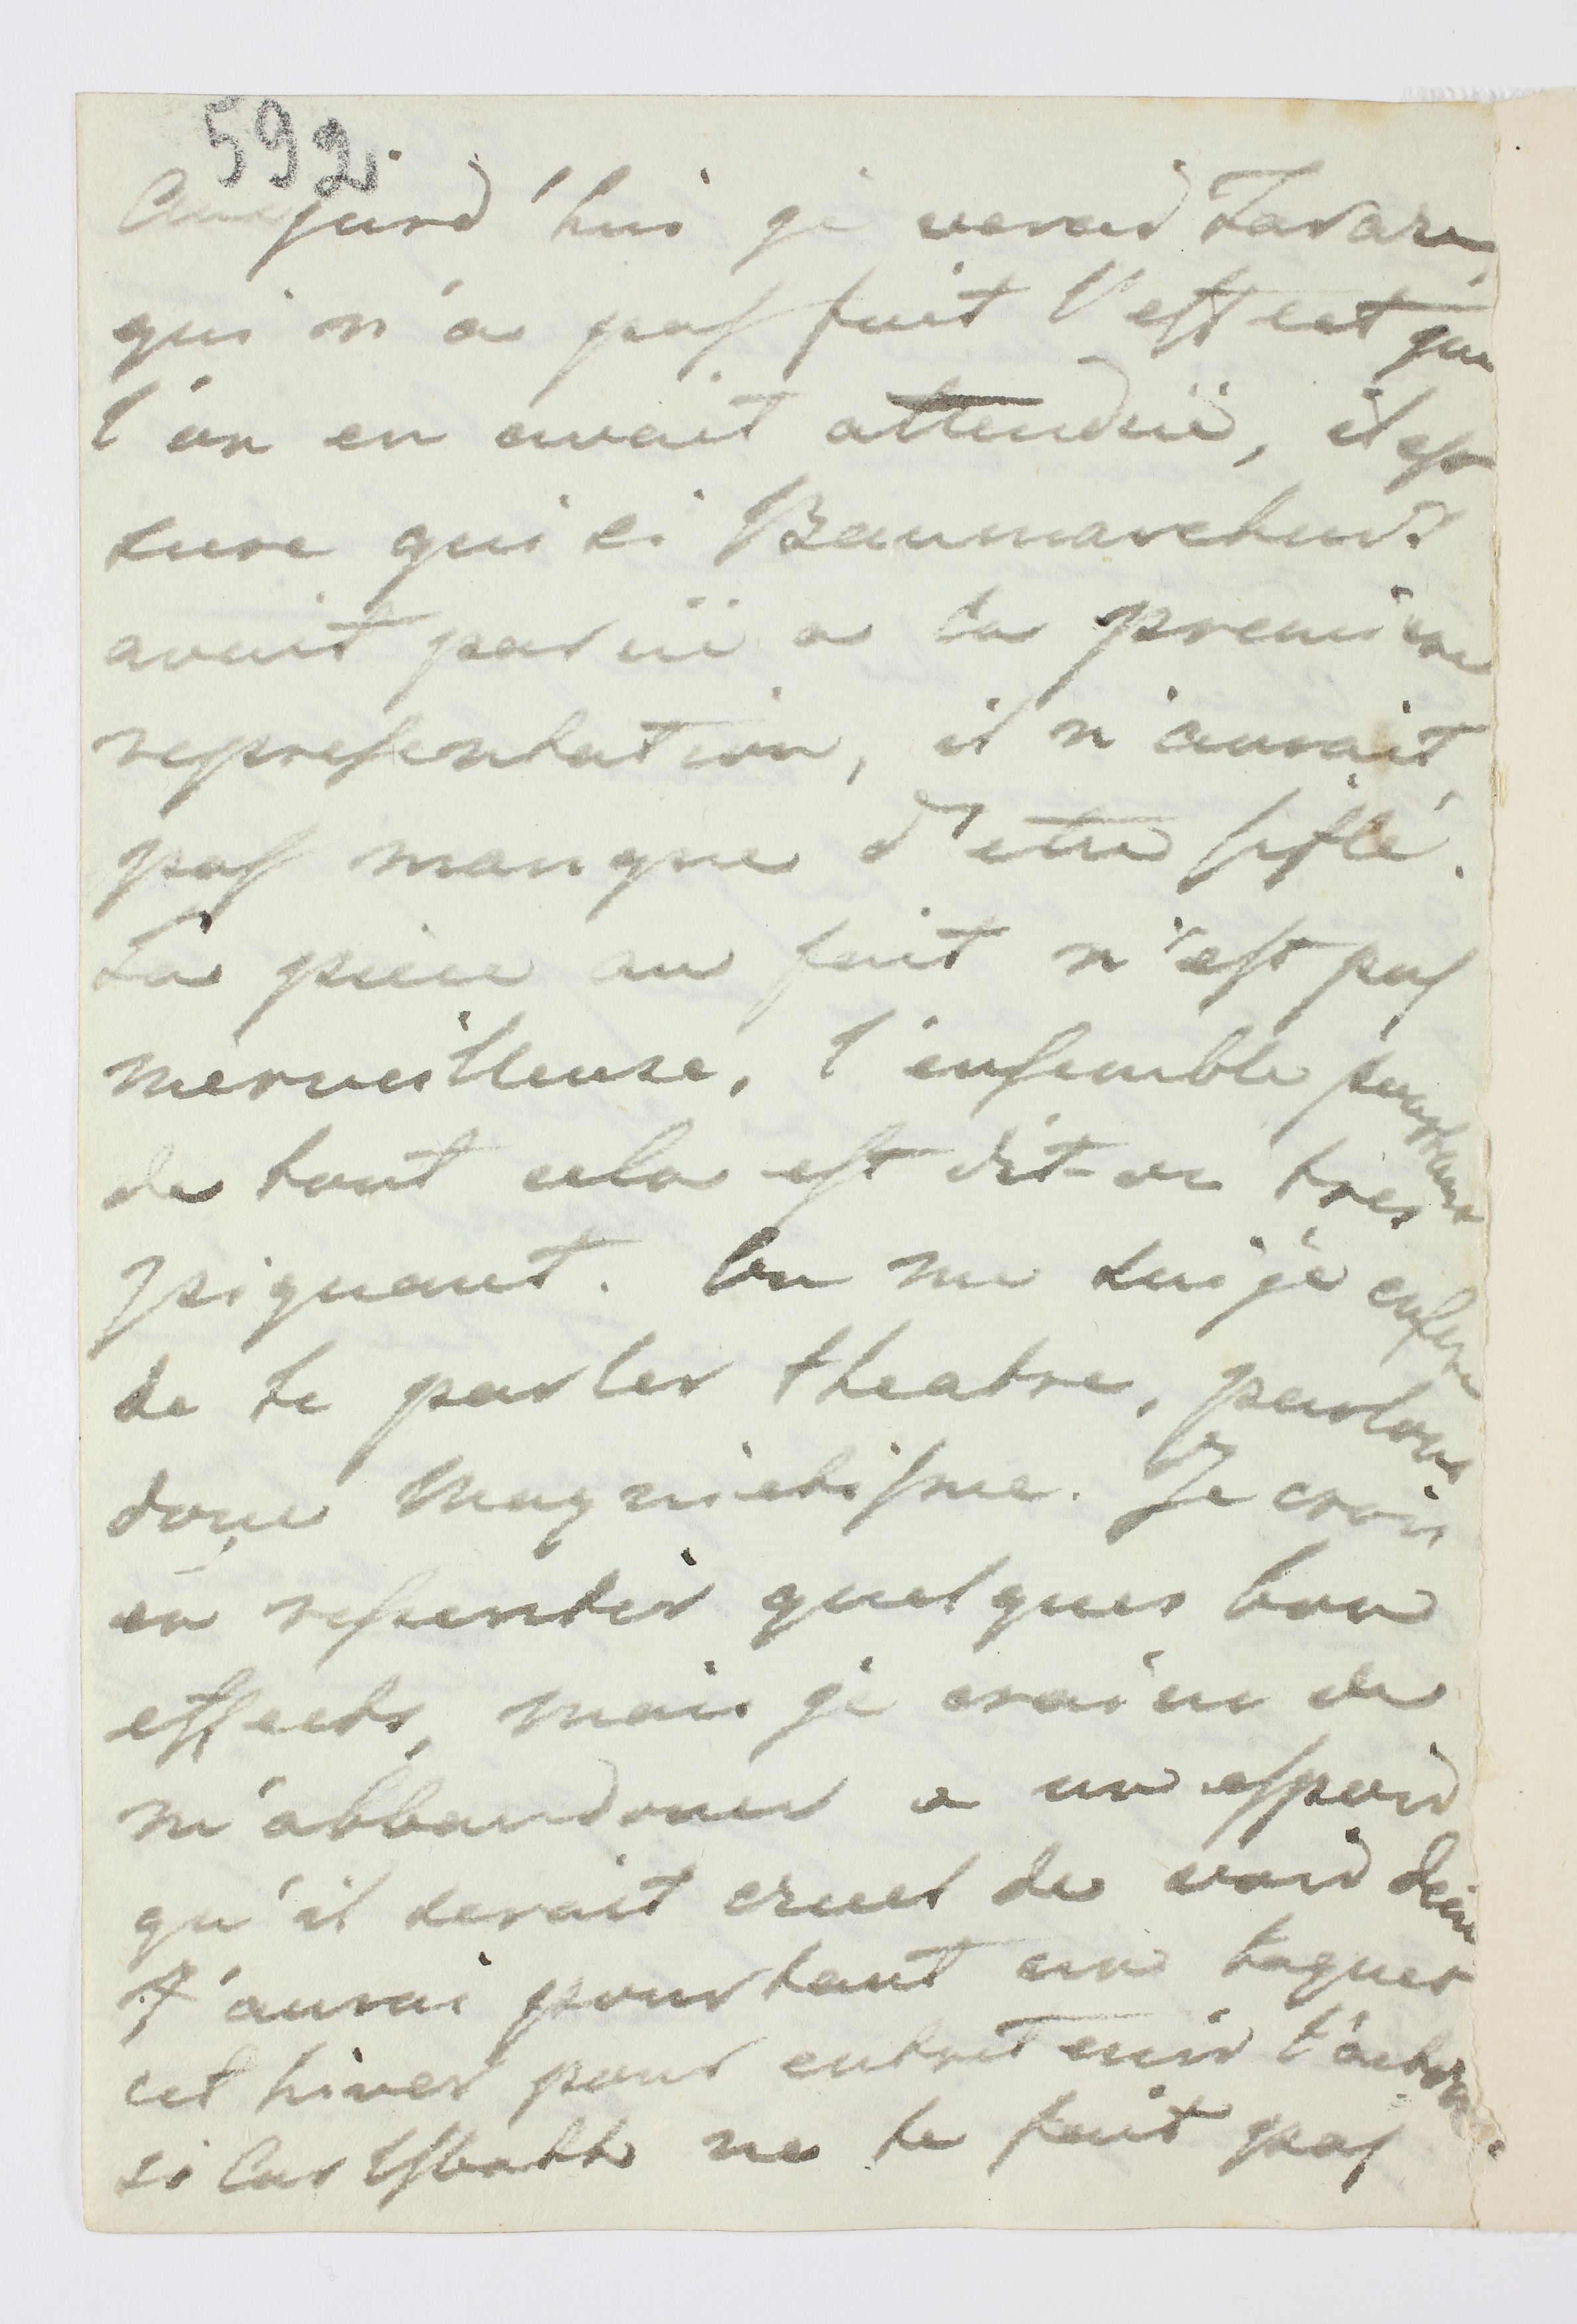 592.
Aujurd'hui je verai Tarare,
qui n'a pas fait l'effect que
l'on en avait attenduë, il est
sure qui si Beaumarchais
avait paruë a la premiere
representation, il n'aurait
pas manque d'etre siflé.
La piece au fait n'est pas
merveilleuse, l'ensemble pourtant
de tout cela est dit-on tres
piquant. On me suijé
de te parler theatre, parlons
donc Magnietisme. Je crois
en resentir quelques bon
effects, mais je crains de
m'abbandoner a un espoir
qu'il serait cruel de voir
J'aurai pourtant un baquet
cet hiver pour entretenir
si Carlsbatt ne te fait pas